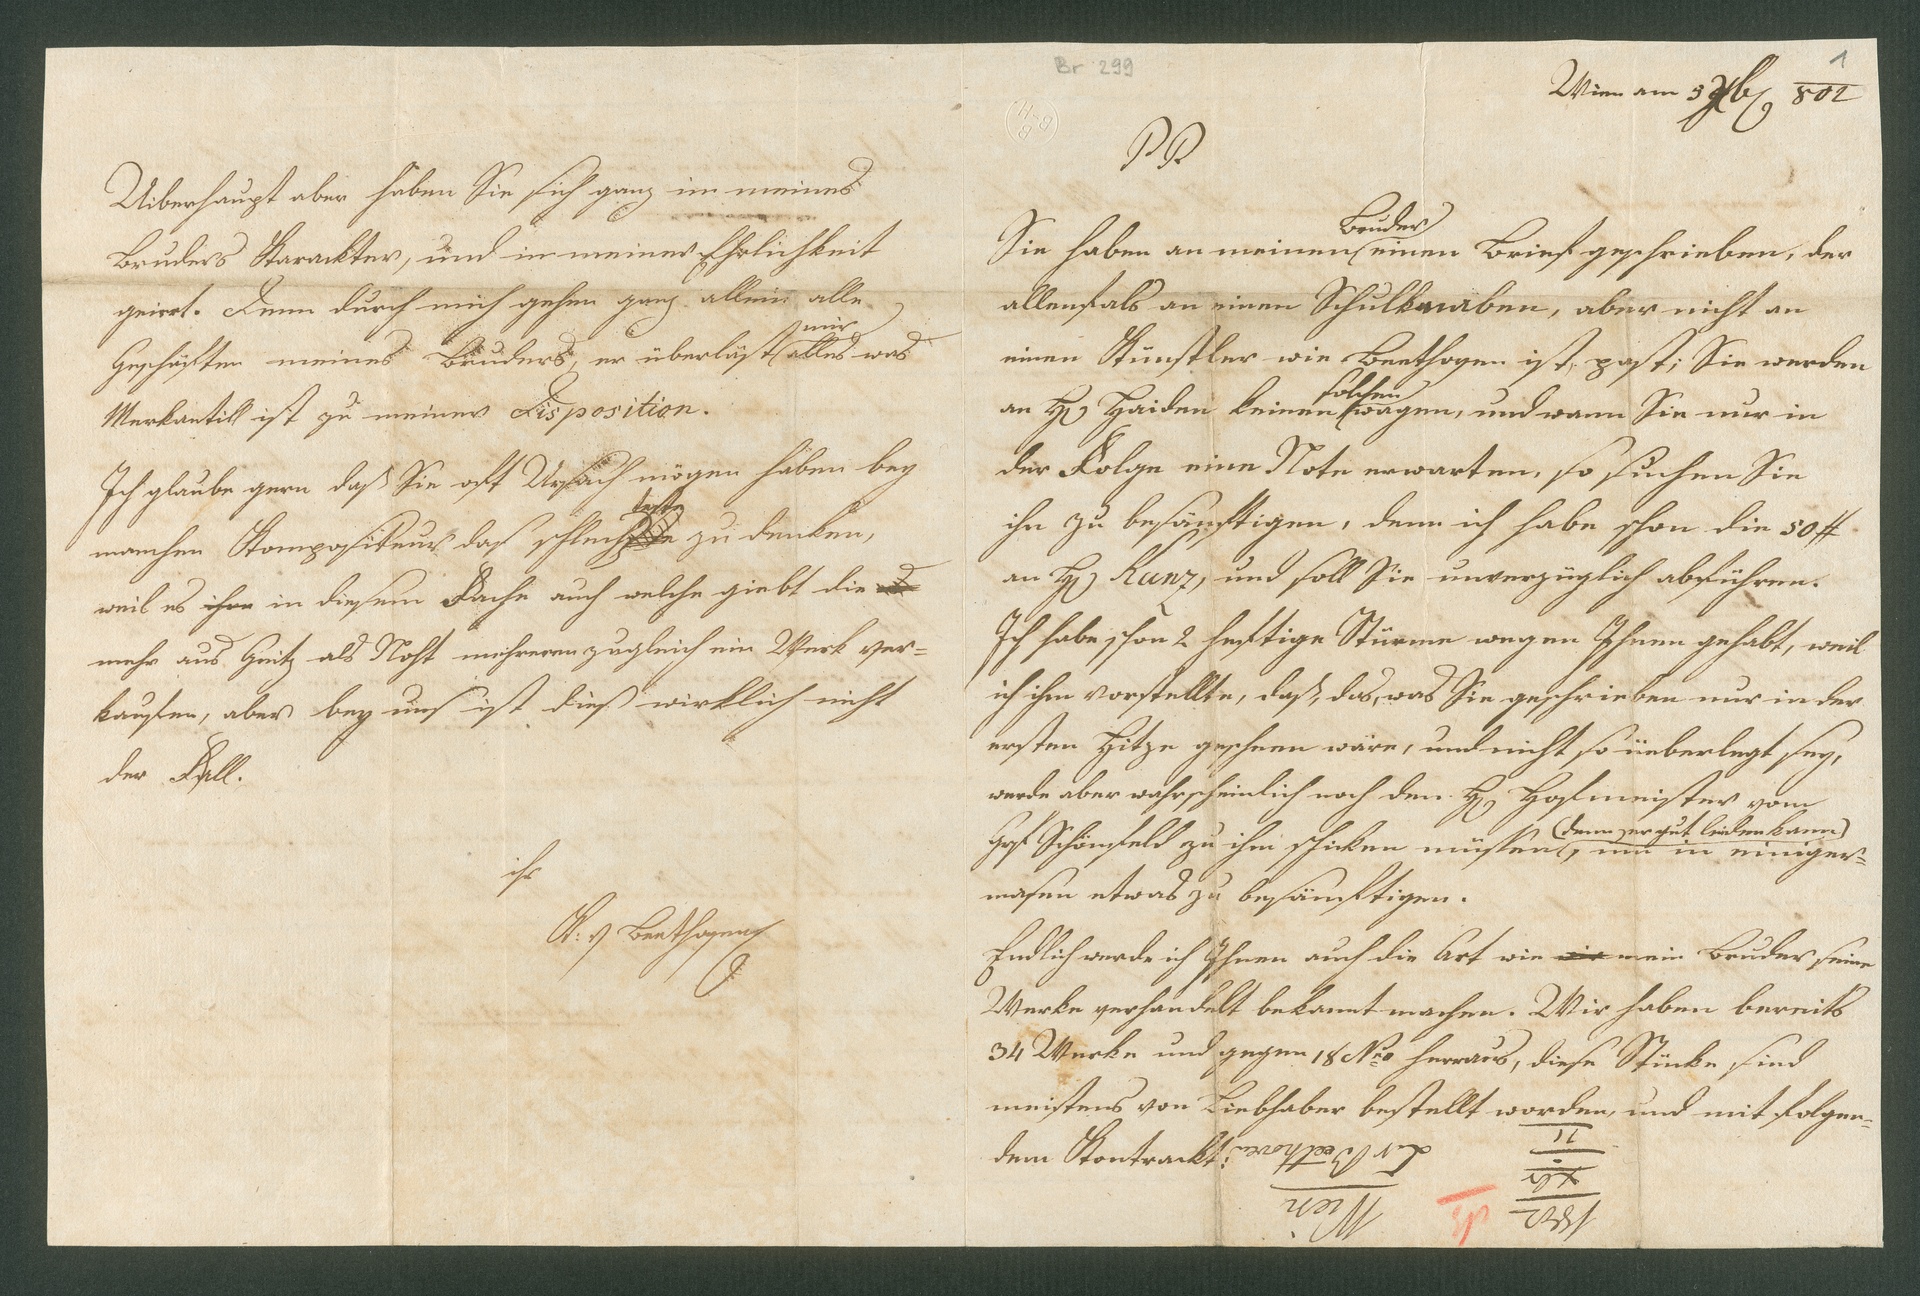 Br 299
1
Wien am 5 Xbr 802
P P
Bruder
Sie haben an meinen einen Brief geschrieben, der
allenfals an einen Schulknaben, aber nicht an
einen Künstler wie Beethoven ist, past; Sie werden
solchen
an H. Haiden keinen wagen, und wann Sie nur in
der Folge eine Note erwarten, so suchen Sie
ihn zu besänftigen, denn ich habe schon die 50 #
an H. Kunz, und soll Sie unverzüglich abführen.
Ich habe schon 2 heftige Stürme wegen Ihnen gehabt, weil
ich ihm vorstellte, daß, das, was Sie geschrieben nur in der
ersten Hitze geschehen wäre, und nicht so üeberlegt sey,
werde aber wahrscheinlich noch den H. Hofmeister vom
(denn er gut leiden kann)
Grf Schönfeld zu ihm schicken müssen, um in einiger=
masen etwas zu besänftigen.
Endlich werde ich Ihnen auch die Art wie mein Bruder seine
Werke verhandelt bekannt machen. Wir haben bereits
34 Werke und gegen 18 Nro herraus, diese Stücke sind
meistens von Liebhaber bestellt worden, und mit folgen=
dem Kontrackt:
1802
Xbr
Wien
L v Beethoven
Uiberhaupt aber haben Sie sich ganz im meines
Bruders Karackter, und in meiner Ehrlichkeit
geirrt. Denn durch mich gehen ganz allein alle
mir
Geschäften meines Bruders, er überläst alles was
Merkantill ist zu meiner Disposition.
Ich glaube gern daß Sie oft Ursach mögen haben bey
teste
manchen Kompositeur das schlech zu denken,
weil es ihm in diesem Fache auch welche giebt die
mehr aus Geitz als Noht mehreren zugleich ein Werk ver=
kaufen, aber bey uns ist dieß wirklich nicht
der Fall.
ihr
K: v Beethoven